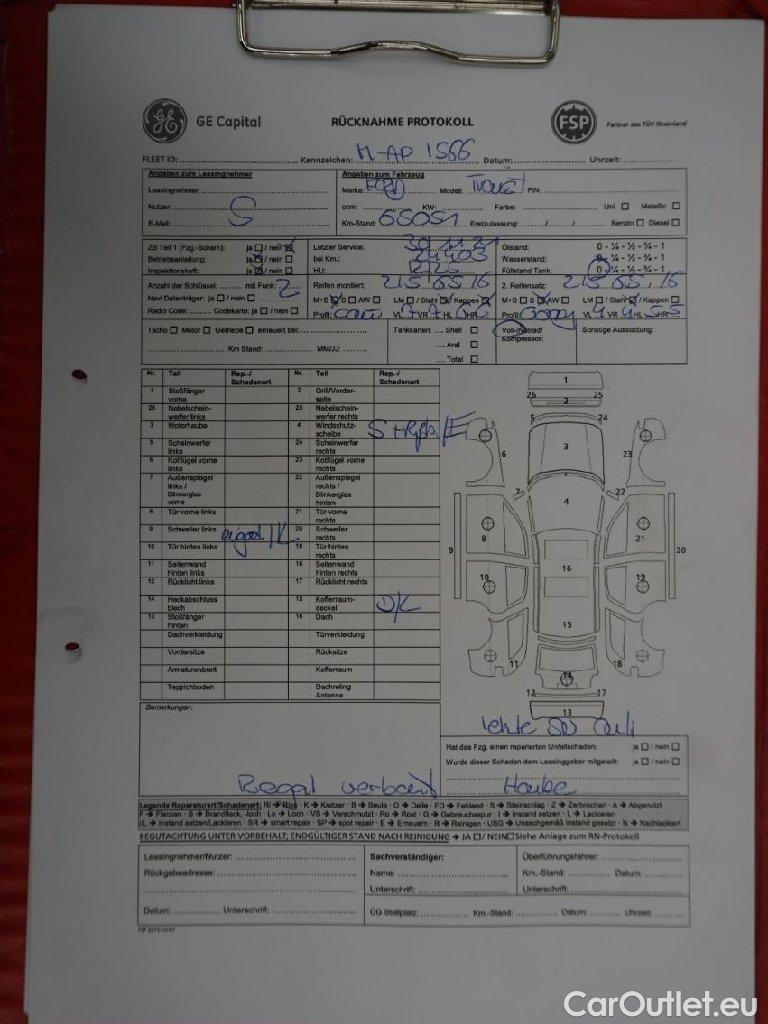 GE Capital RÜCKNAHME PROTOKOLL FSP Partner des TÜV Rheinland
FLEET ID: Kennzeichen: M-AP 1566 Datum: Uhrzeit:
Angaben zum Leasingnehmer Angaben zum Fahrzeug
Leasingnehmer: Marke: FORD Modell: FIN:
Nutzer: ccm: KW: Farbe: Uni Metallic
E-Mail: Km-Stand: 65051 Erstzulassung: Benzin Diesel
ZB Teil 1 (Fzg.-Schein): ja / nein Letzter Service: 30.11.21 Ölstand: 0 - ¼ - ½ - ¾ - 1
Betriebsanleitung: ja / nein bei Km.: 24403 Wasserstand: 0 - ¼ - ½ - ¾ - 1
Inspektionsheft: ja / nein HU: Füllstand Tank: 0 - ¼ - ½ - ¾ - 1
Anzahl der Schlüssel: mit Funk: 2 Reifen montiert: 215 65 16 2. Reifensatz: 215 65 16
Navi Datenträger: ja / nein M+S S AW LM / Stahl / Kappen M+S S AW LM / Stahl / Kappen
Radio Code: Codekarte: ja / nein Profil: VL 7 VR 7 HL HR Profil: VL 4 VR 4 HL 5 HR 5
Tacho Motor Getriebe erneuert bei: Tankkarten: Shell Voll-/Notrad/ Sonstige Ausstattung:
Aral Kompressor:
Km Stand: MM/JJ: Total
Nr. Teil Rep.-/ Schadenart Nr. Teil Rep.-/ Schadenart
1 Stoßfänger vorne 2 Grill/Vorderseite
26 Nebelscheinwerfer links 25 Nebelscheinwerfer rechts
3 Motorhaube 4 Windschutzscheibe
5 Scheinwerfer links 24 Scheinwerfer rechts
6 Kotflügel vorne links 23 Kotflügel vorne rechts
7 Außenspiegel links / Blinkerglas vorne 22 Außenspiegel rechts / Blinkerglas hinten
8 Tür vorne links 21 Tür vorne rechts
9 Schweller links 20 Schweller rechts
10 Tür hinten links 19 Tür hinten rechts
11 Seitenwand hinten links 18 Seitenwand hinten rechts
12 Rücklicht links 17 Rücklicht rechts
14 Heckabschlussblech 15 Kofferraumdeckel D/K
13 Stoßfänger hinten 16 Dach
Dachverkleidung Türverkleidung
Vordersitze Rücksitze
Armaturenbrett Kofferraum
Teppichboden Dachreling Antenne
Bemerkungen:
Hat das Fzg. einen reparierten Unfallschaden: ja / nein
Wurde dieser Schaden dem Leasinggeber mitgeteilt: ja / nein
Regal verbaut
Legende Reparaturart/Schadenart: Ri → Riss - K → Kratzer - B → Beule - D → Delle - FD → Fehlend - S → Steinschlag - Z → Zerbrochen - A → Abgenutzt
F → Flecken - B → Brandfleck, -loch - Lo → Loch - VS → Verschmutzt - Ro → Rost - G → Gebrauchsspur - I → Instand setzen - L → Lackieren
IL → Instand setzen/Lackieren - SR → smart repair - SP → spot repair - E → Erneuern - R → Reinigen - USG → Unsachgemäß instand gesetzt - N → Nachlackiert
BEGUTACHTUNG UNTER VORBEHALT; ENDGÜLTIGER STAND NACH REINIGUNG → JA / NEIN Siehe Anlage zum RN-Protokoll
Leasingnehmer/Nutzer: Sachverständiger: Überführungsfahrer:
Rückgabeadresse: Name: Km.-Stand: Datum:
Unterschrift: Unterschrift:
Datum: Unterschrift: CG Stellplatz: Km.-Stand: Datum: Uhrzeit:
CarOutlet.eu